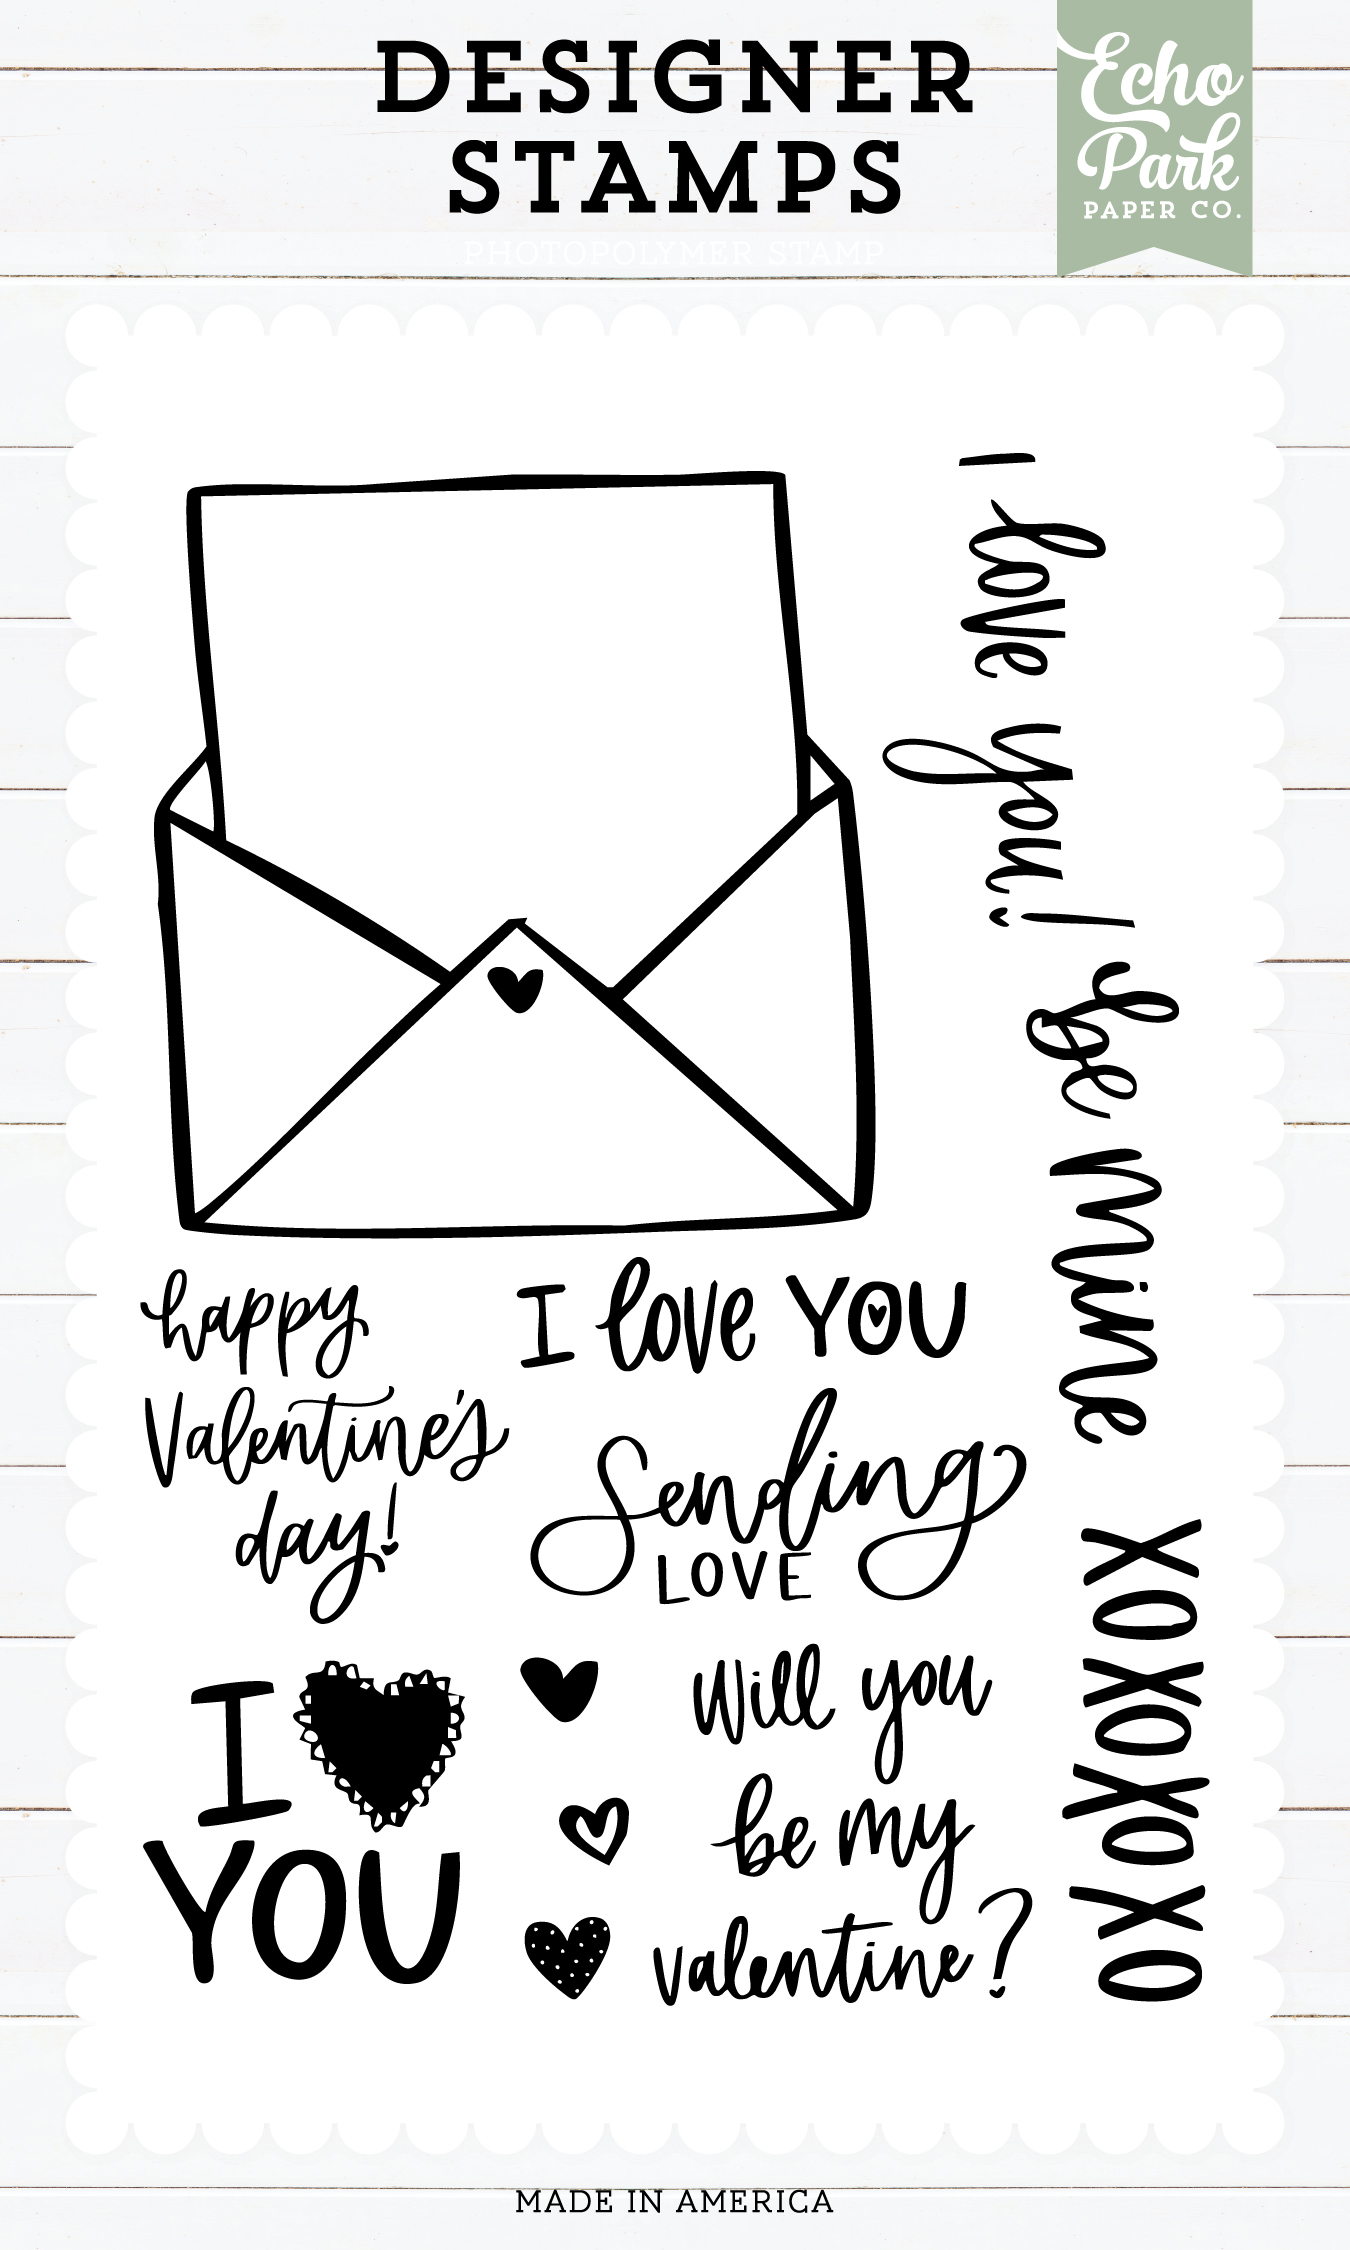 DESIGNER
STAMPS
PHOTOPOLYMER STAMP
Echo
Park
PAPER CO.
I love you!
be mine
XOXOXOXO
happy
Valentine's
day!
I love YOU
Sending
LOVE
I
YOU
Will you
be my
valentine?
MADE IN AMERICA